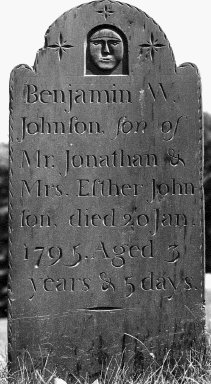 Benjamin W.
Johnſon, ſon of
Mr. Jonathan &
Mrs. Eſther John
ſon, died 20 Jan.
1795, Aged 3
years & 5 days.